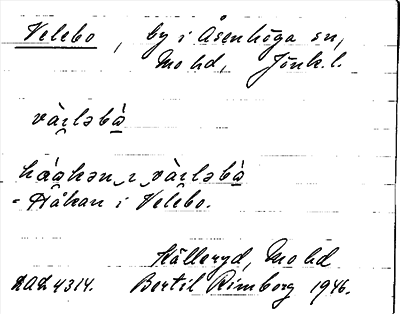 Velebo, by i Åsenhöga sn,
Mo hd, Jönk. l.
vàrləbà
háəkən ɪ vàrləbà
= Håkan i Velebo.
Källeryd, Mo hd
DAL 4314. Bertil Rimborg 1946.